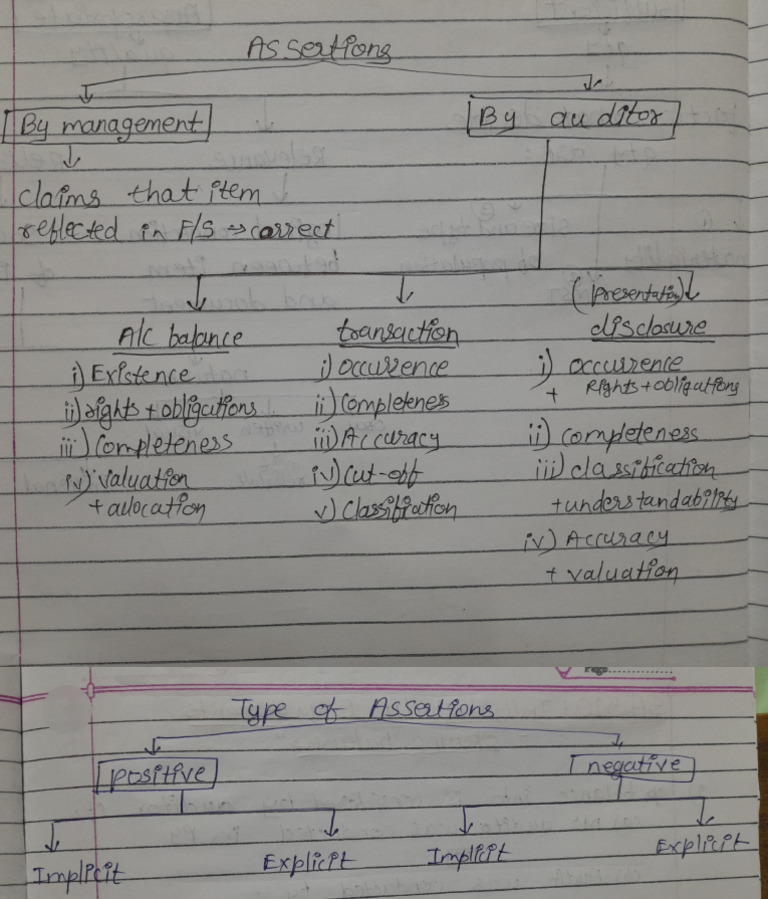 Assertions
By management
By auditor
claims that item
reflected in F/S → correct
A/C balance
i) Existence
ii) rights + obligations
iii) Completeness
iv) valuation
+ allocation
transaction
i) Occurrence
ii) Completenes
iii) Accuracy
iv) Cut-off
v) Classification
(presentation)
disclosure
i) occurrence
+ Rights + obligations
ii) completeness
iii) classification
+ understandability
iv) Accuracy
+ valuation
Type of Assertions
positive
negative
Implicit
Explicit
Implicit
Explicit